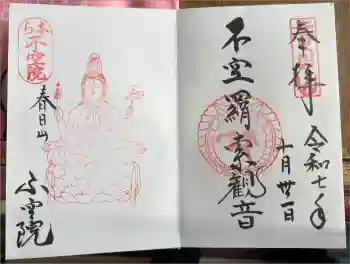 奉拝
令和七年
十月廿一日
不空羂索観音
春日山
不空院
不空院